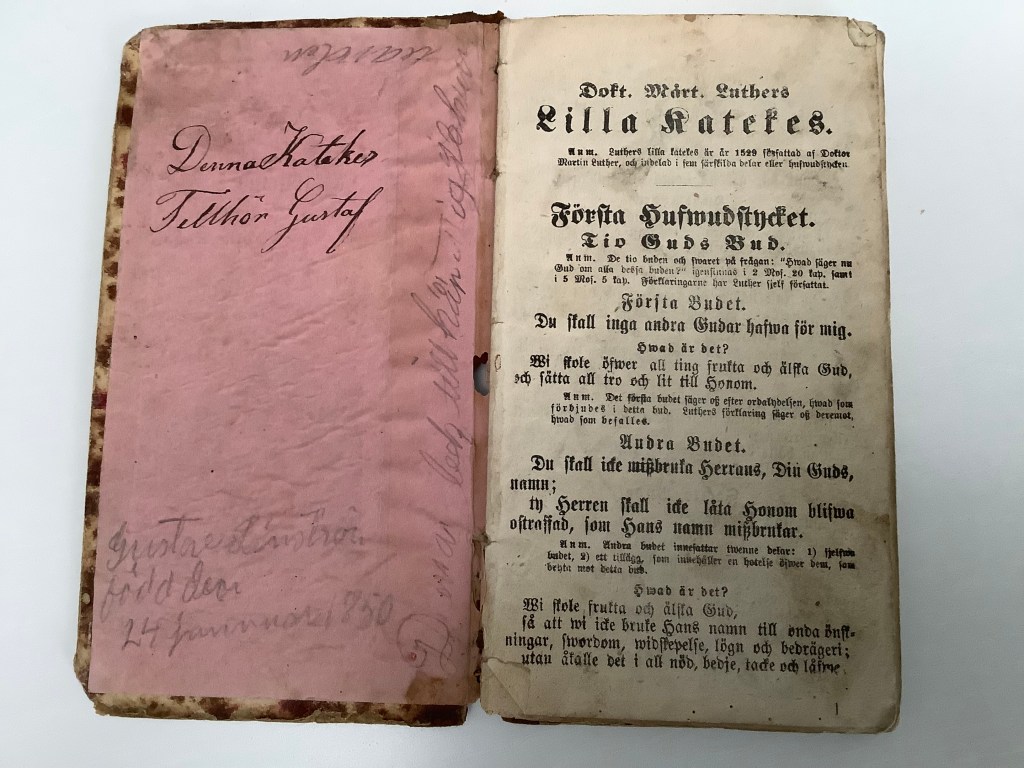 Denna Katekes
Tillhör Gustaf
Gustav
född den
24 januari 1850
Denna bok tillhör mig
Dokt. Mårt. Luthers
Lilla Katekes.
Anm. Luthers lilla katekes är år 1529 författad af Doktor
Martin Luther, och indelad i fem särskilda delar eller hufwudstycken.
Första Hufwudstycket.
Tio Guds Bud.
Anm. De tio buden och swaret på frågan: "Hwad säger nu
Gud om alla dessa buden?" igenfinnas i 2 Mos. 20 kap. samt
i 5 Mos. 5 kap. Förklaringarne har Luther sjelf författat.
Första Budet.
Du skall inga andra Gudar hafwa för mig.
Hwad är det?
Wi skole öfwer all ting frukta och älska Gud,
och sätta all tro och lit till Honom.
Anm. Det första budet säger oß efter ordalydelsen, hwad som
förbjudes i detta bud. Luthers förklaring säger oß deremot,
hwad som befalles.
Andra Budet.
Du skall icke mißbruka Herrans, Din Guds,
namn;
ty Herren skall icke låta Honom blifwa
ostraffad, som Hans namn mißbrukar.
Anm. Andra budet innefattar twenne delar: 1) sjelfwa
budet, 2) ett tillägg, som innehåller en hotelse öfwer dem, som
bryta mot detta bud.
Hwad är det?
Wi skole frukta och älska Gud,
så att wi icke bruke Hans namn till onda önsk-
ningar, swordom, widskepelse, lögn och bedrägeri;
utan åkalle det i all nöd, bedje, tacke och låfwe.
1